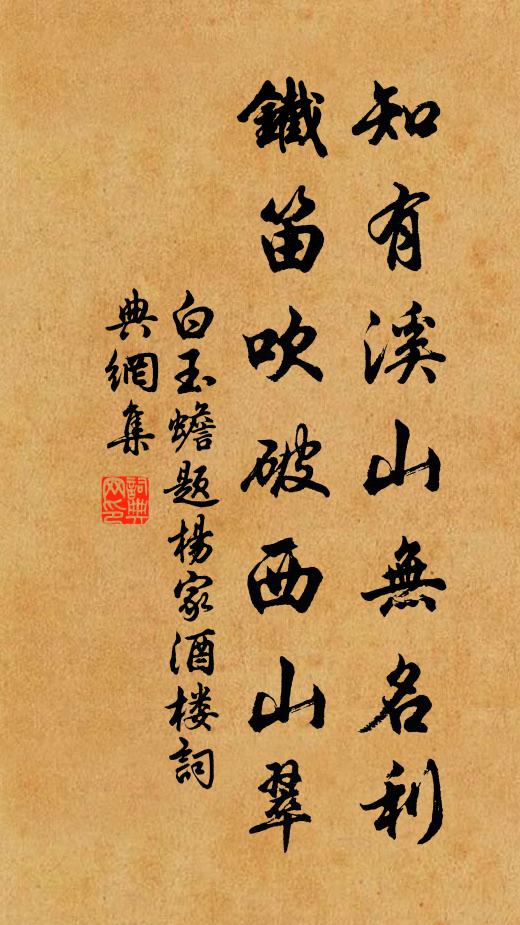 知有溪山無名利
鐵笛吹破西山翠
白玉蟾题楊家酒楼詞
典網集
詞典
网印